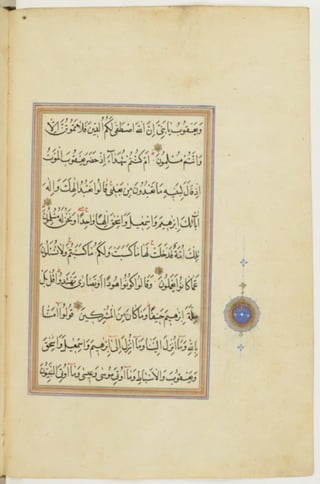 وَيَعْقُوبُ يَا بَنِيَّ اِنَّ اللّٰهَ اصْطَفٰى لَكُمُ الدّ۪ينَ فَلَا تَمُوتُنَّ اِلَّا
وَاَنْتُمْ مُسْلِمُونَ اَمْ كُنْتُمْ شُهَدَٓاءَ اِذْ حَضَرَ يَعْقُوبَ الْمَوْتُ
اِذْ قَالَ لِبَن۪يهِ مَا تَعْبُدُونَ مِنْ بَعْد۪ي قَالُوا نَعْبُدُ اِلٰهَكَ وَاِلٰهَ
اٰبَٓائِكَ اِبْرٰه۪يمَ وَاِسْمٰع۪يلَ وَاِسْحٰقَ اِلٰهًا وَاحِدًا وَنَحْنُ لَهُ مُسْلِمُونَ
تِلْكَ اُمَّةٌ قَدْ خَلَتْ لَهَا مَا كَسَبَتْ وَلَكُمْ مَا كَسَبْتُمْ وَلَا تُسْـَٔلُونَ
عَمَّا كَانُوا يَعْمَلُونَ وَقَالُوا كُونُوا هُودًا اَوْ نَصَارٰى تَهْتَدُوا قُلْ بَلْ
مِلَّةَ اِبْرٰه۪يمَ حَن۪يفًا وَمَا كَانَ مِنَ الْمُشْرِك۪ينَ قُولُوا اٰمَنَّا
بِاللّٰهِ وَمَٓا اُنْزِلَ اِلَيْنَا وَمَٓا اُنْزِلَ اِلٰٓى اِبْرٰه۪يمَ وَاِسْمٰع۪يلَ وَاِسْحٰقَ
وَيَعْقُوبَ وَالْاَسْبَاطِ وَمَٓا اُو۫تِيَ مُوسٰى وَع۪يسٰى وَمَٓا اُو۫تِيَ النَّبِيُّونَ